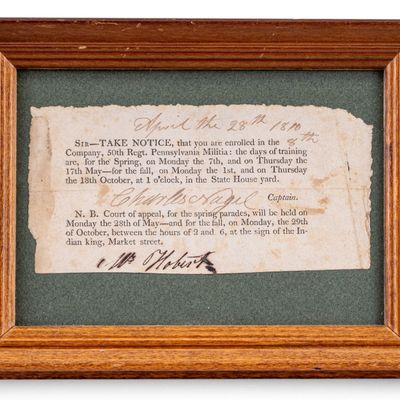 April the 28th 1810
SIR—TAKE NOTICE, that you are enrolled in the 8th
Company, 50th Regt. Pennsylvania Militia: the days of training
are, for the Spring, on Monday the 7th, and on Thursday
17th May—for the fall, on Monday the 1st, and on Thursday
the 18th October, at 1 o'clock, in the State House yard.
Charles Nagel Captain.
N. B. Court of appeal, for the spring parades, will be held on
Monday the 28th of May—and for the fall, on Monday, the 29th
of October, between the hours of 2 and 6, at the sign of the In-
dian king, Market street.
Mr Hobert